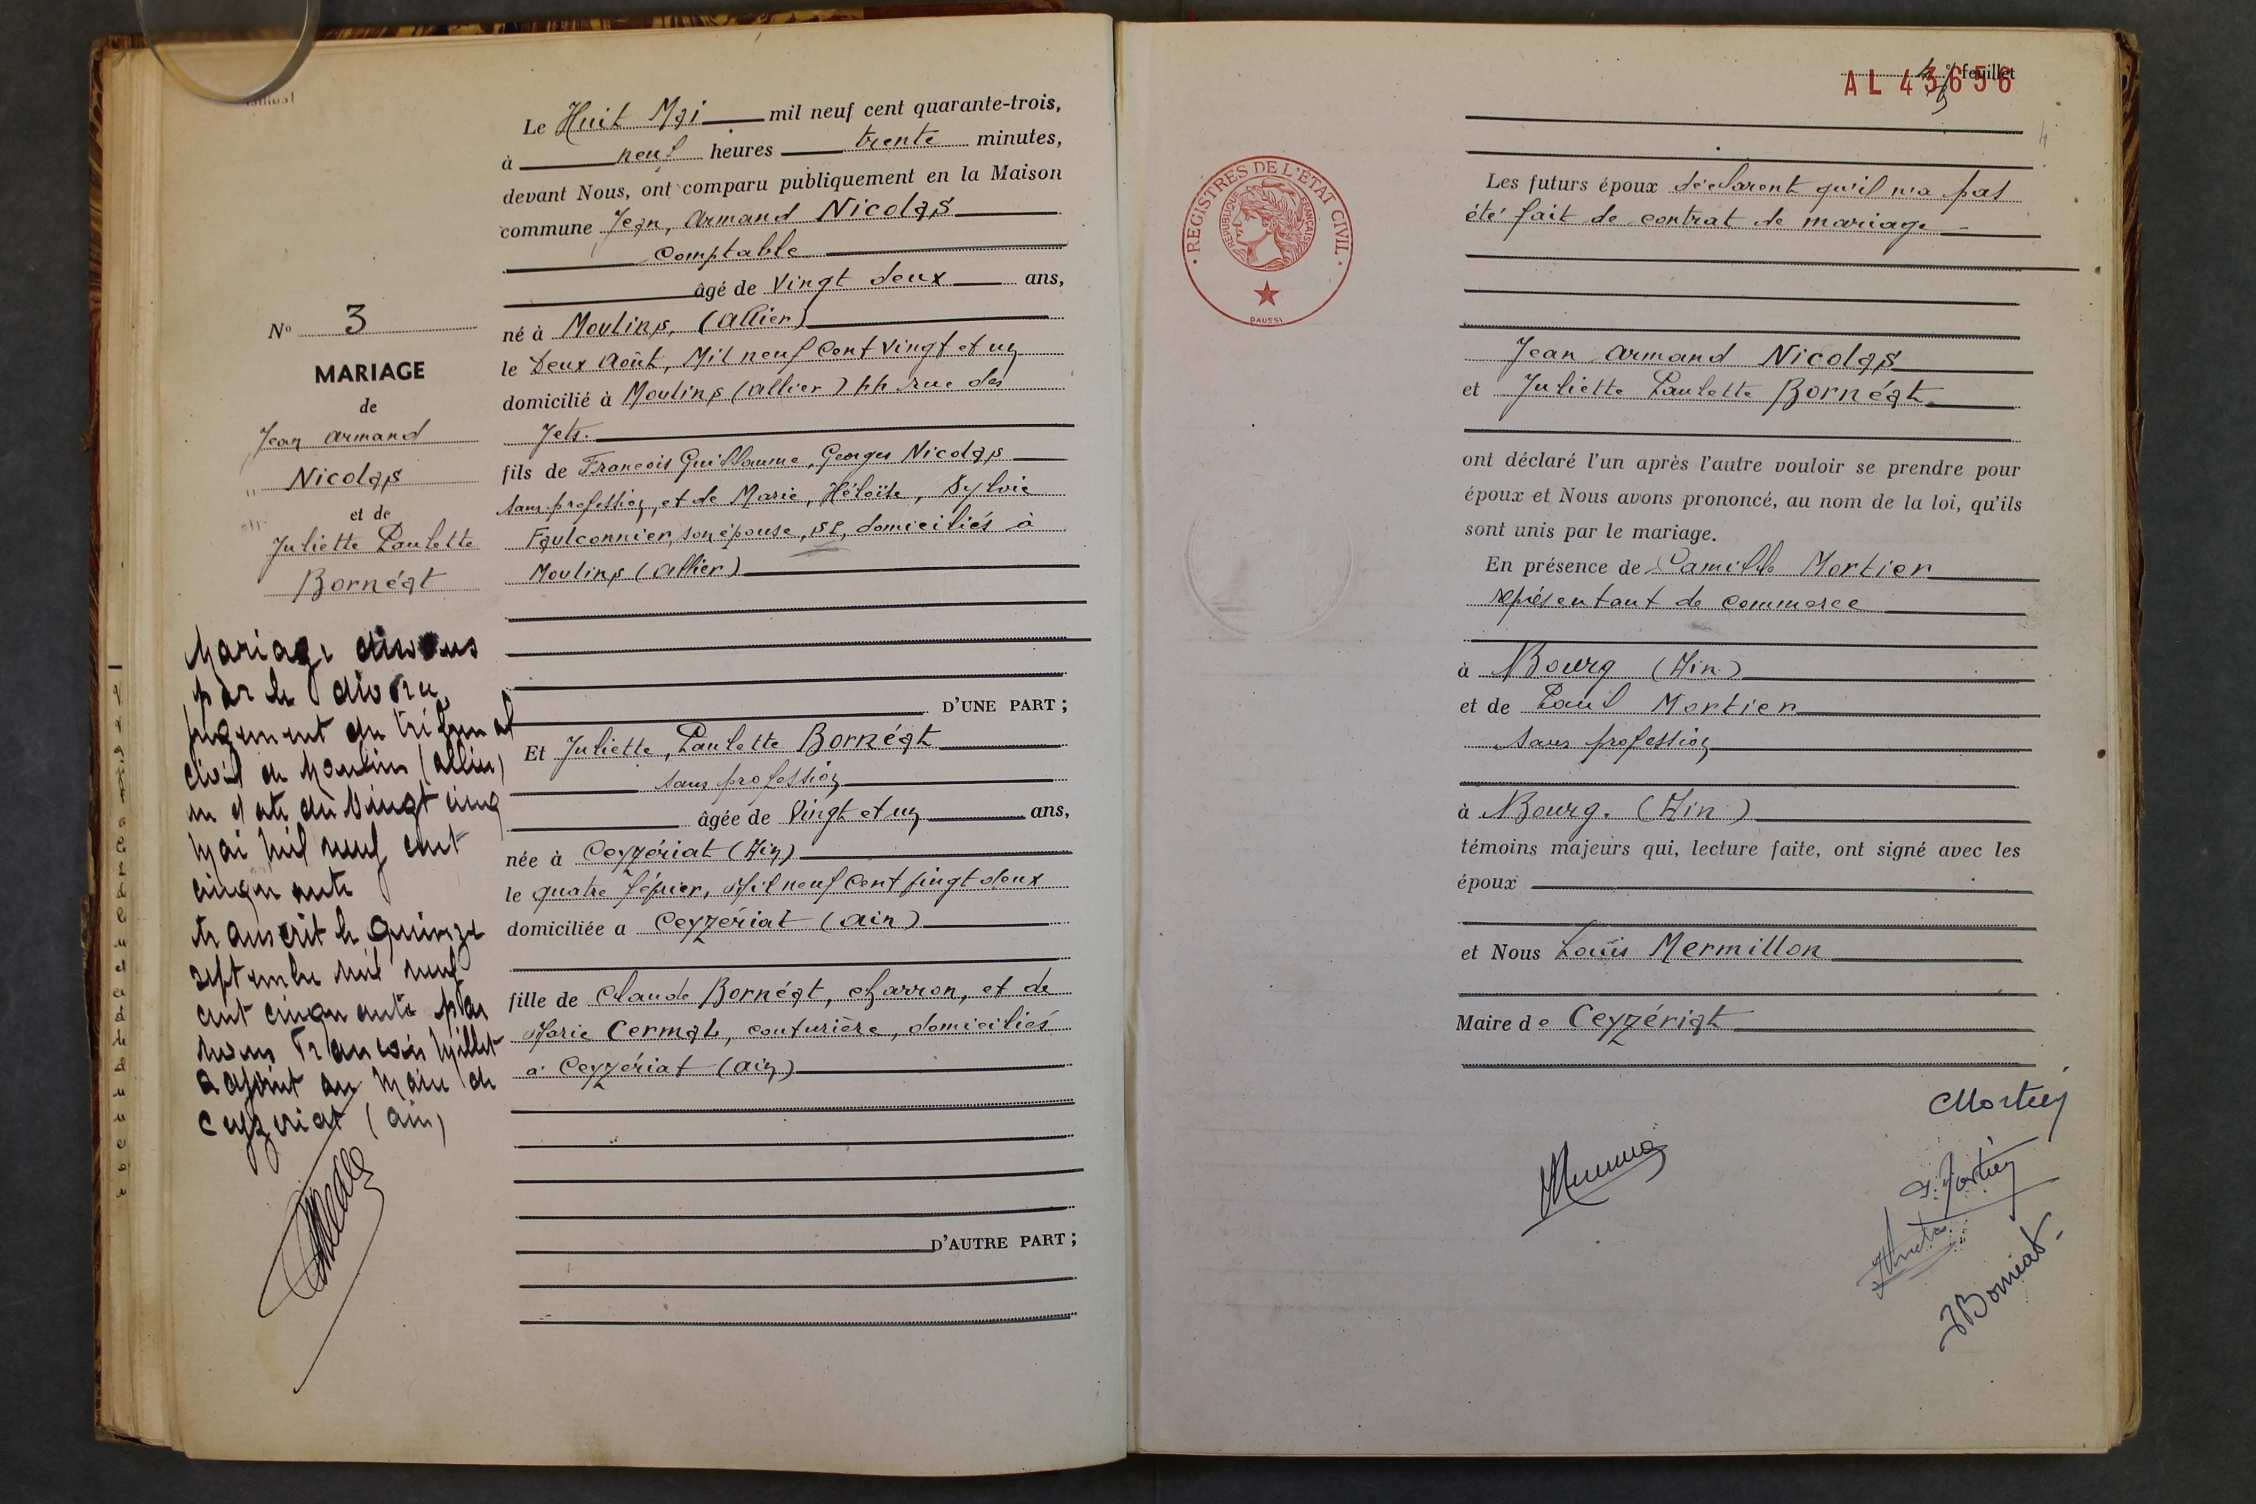 Le Huit Mai mil neuf cent quarante-trois,
à neuf heures trente minutes,
devant Nous, ont comparu publiquement en la Maison
commune Jean, Armand Nicolas
Comptable
âgé de Vingt deux ans,
né à Moulins, (Allier)
le Deux Août, Mil neuf Cent Vingt et un
domicilié à Moulins (Allier) rue des
fils de Francois Guillaume, Georges Nicolas
sans profession, et de Marie, Héloïse, Sylvie
Faulconnier, son épouse, domiciliés à
Moulins (Allier)
D'UNE PART ;
Et Juliette, Paulette Bornéat
sans profession
âgée de Vingt et un ans,
née à Ceyzériat (Ain)
le quatre février, Mil neuf Cent vingt deux
domiciliée a Ceyzériat (Ain)
fille de Claude Bornéat, charron, et de
Marie Cermat, couturière, domiciliés
à Ceyzériat (Ain)
D'AUTRE PART ;
No 3
MARIAGE
de
Jean Armand
Nicolas
et de
Juliette Paulette
Bornéat
Mariage dissous
par le divorce
jugement du tribunal
civil de Moulins (Allier)
en date du Vingt cinq
Mai Mil neuf cent
cinquante
transcrit le Quinze
septembre Mil neuf
cent cinquante par
nous François Millet
adjoint au Maire de
Ceyzeriat (Ain)
e feuillet
AL 43656
REGISTRES DE L'ÉTAT CIVIL
RÉPUBLIQUE FRANÇAISE
DAUSSI
Les futurs époux déclarent qu'il n'a pas
été fait de contrat de mariage
Jean Armand Nicolas
et Juliette Paulette Bornéat
ont déclaré l'un après l'autre vouloir se prendre pour
époux et Nous avons prononcé, au nom de la loi, qu'ils
sont unis par le mariage.
En présence de Camille Mortier
représentant de commerce
à Bourg (Ain)
et de Paul Mortier
sans profession
à Bourg. (Ain)
témoins majeurs qui, lecture faite, ont signé avec les
époux
et Nous Louis Mermillon
Maire de Ceyzériat
CMortier
JBorneat